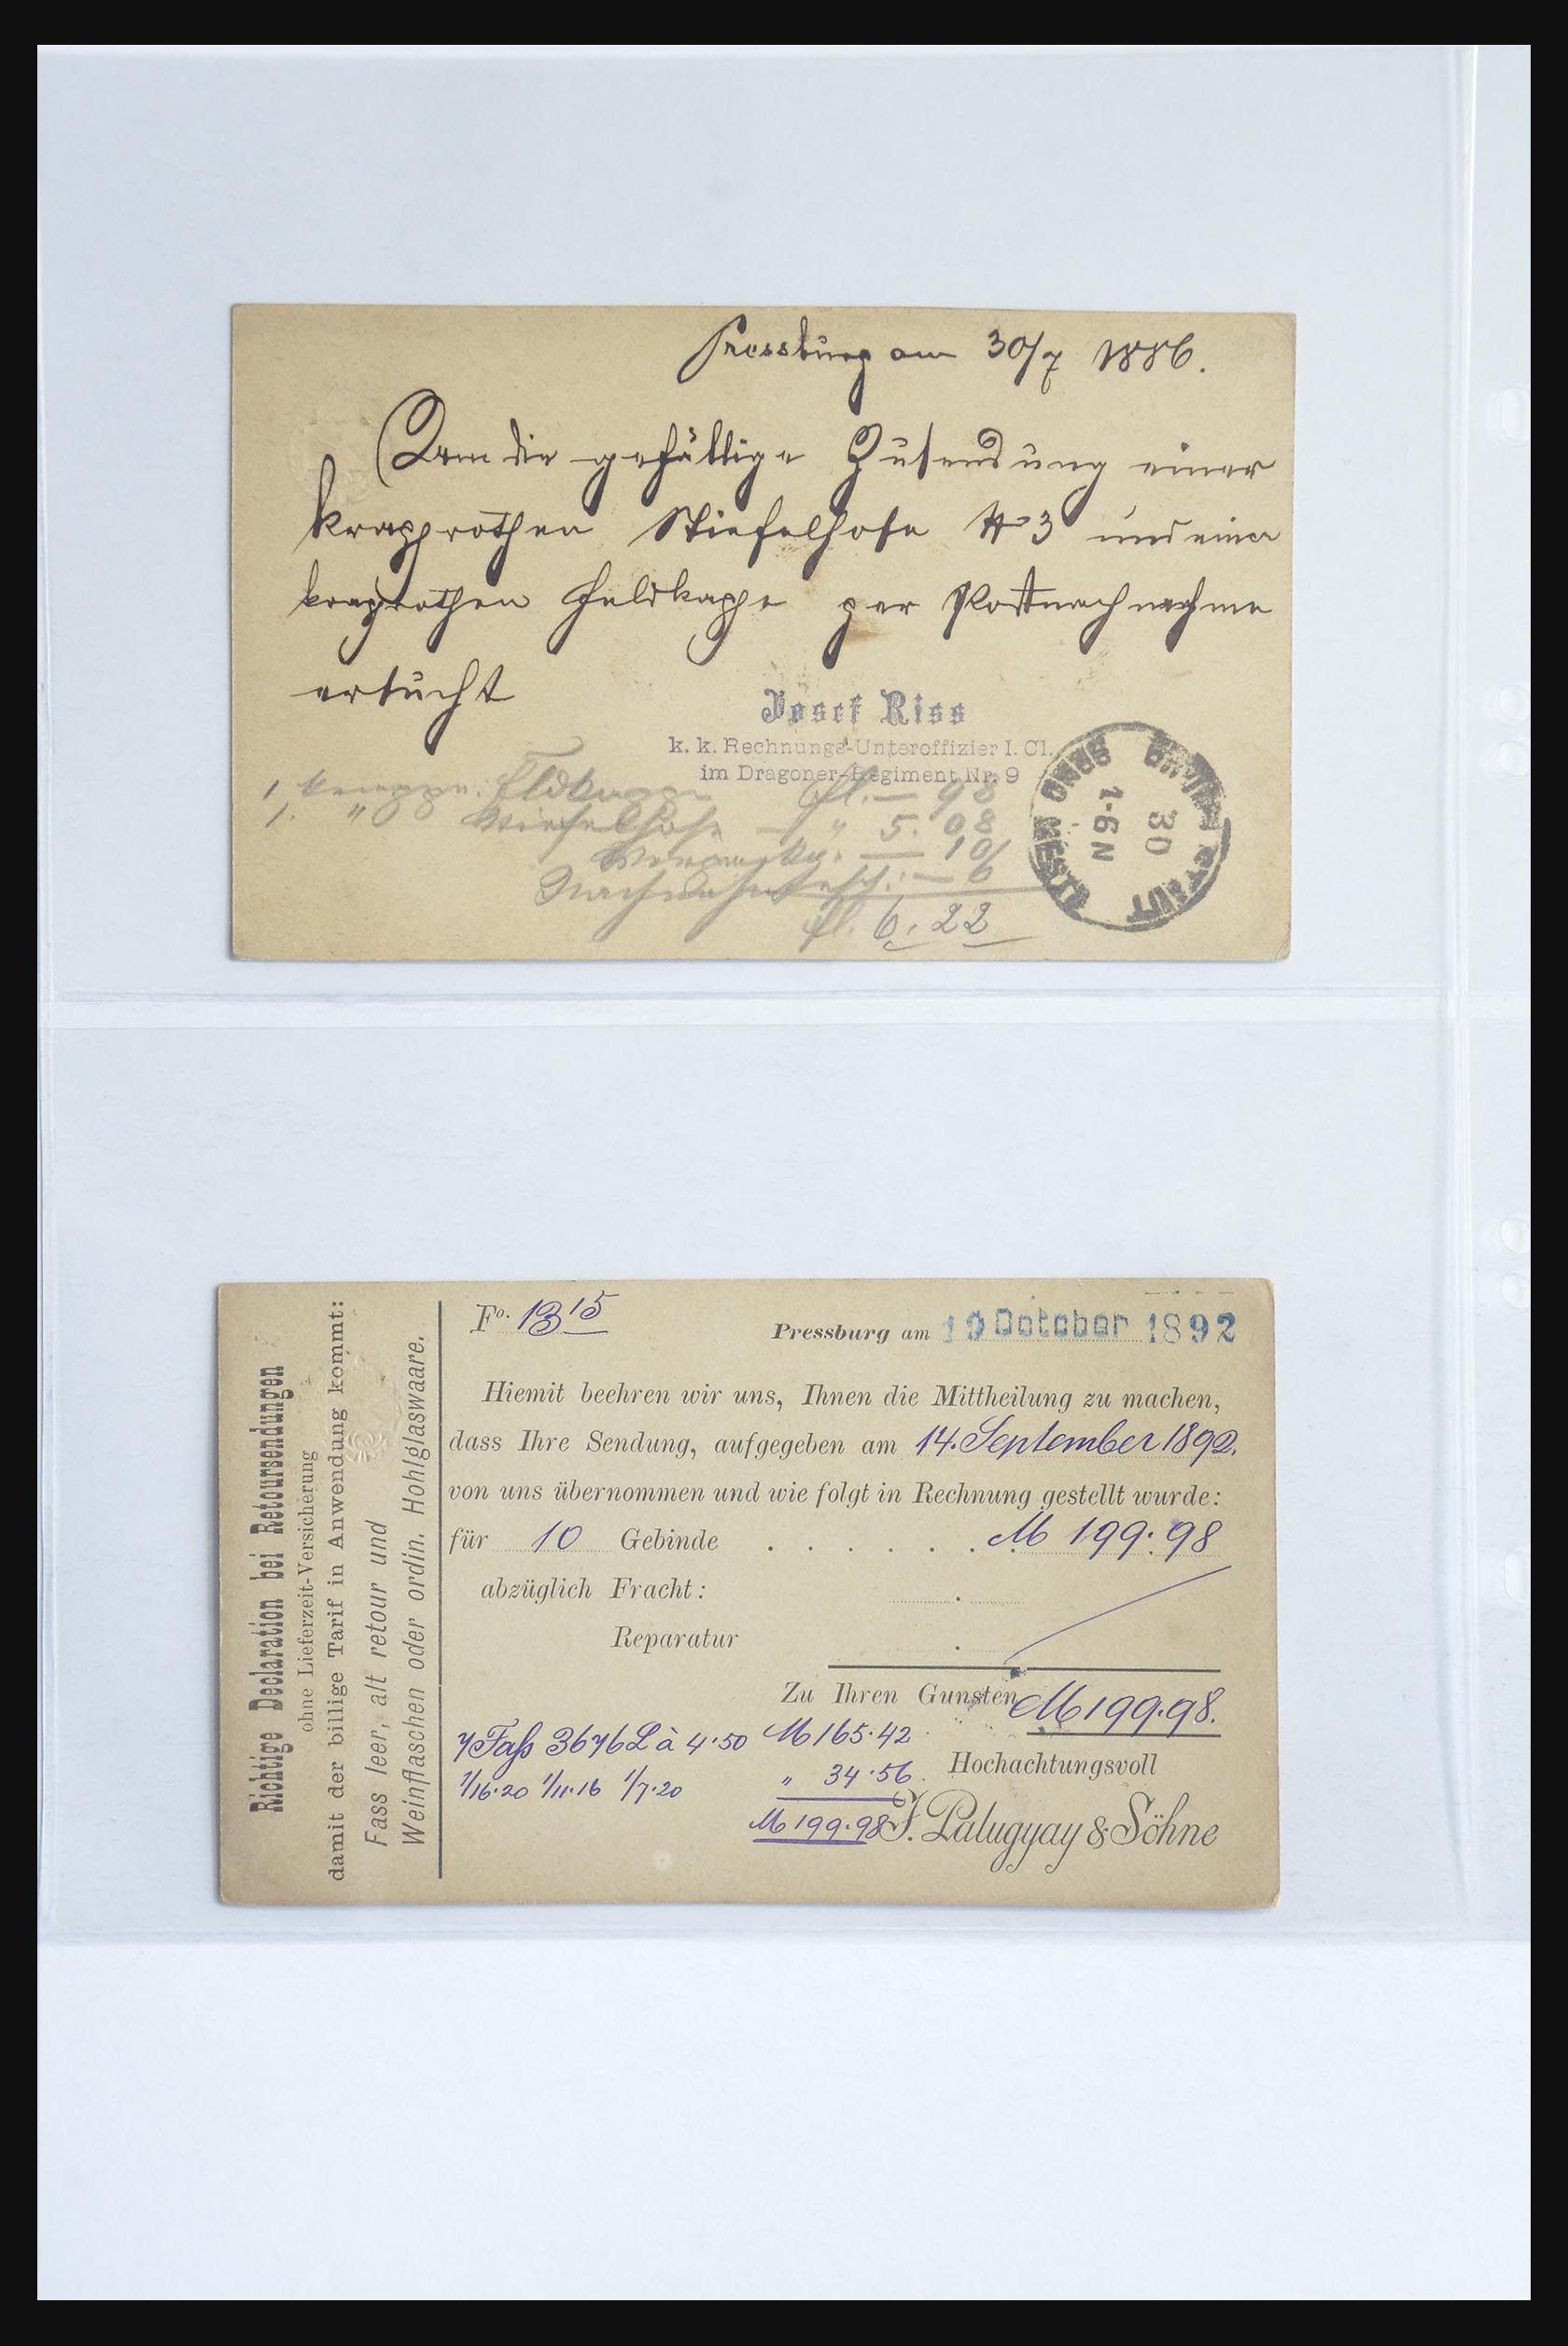 Pressburg am 30/7 1886.
Um die gefällige Zusendung einer
krapprothen Stiefelhose # 3 und einer
kraprothen Feldkappe per Postnachnahme
ersucht
Josef Riss
k. k. Rechnungs-Unteroffizier I. Cl.
im Dragoner-Regiment Nr. 9
1 Feldkappe fl. — 98
1. " Stiefelhose — " 5. 08
— 10
— 6
fl. 6. 22
30
1-6 N
Fo. 1315
Pressburg am 10 October 1892
Hiemit beehren wir uns, Ihnen die Mittheilung zu machen,
dass Ihre Sendung, aufgegeben am 14. September 1892.
von uns übernommen und wie folgt in Rechnung gestellt wurde:
für 10 Gebinde . . . . . . M 199.98
abzüglich Fracht:
Reparatur
Zu Ihren Gunsten M 199.98.
7 Faß 3676 L à 4.50 M 165.42
1/16.20 1/11.16 1/7.20 " 34.56
M 199.98
Hochachtungsvoll
J. Palugyay & Söhne
Richtige Declaration bei Retoursendungen
ohne Lieferzeit-Versicherung
damit der billige Tarif in Anwendung kommt:
Fass leer, alt retour und
Weinflaschen oder ordin. Hohlglaswaare.